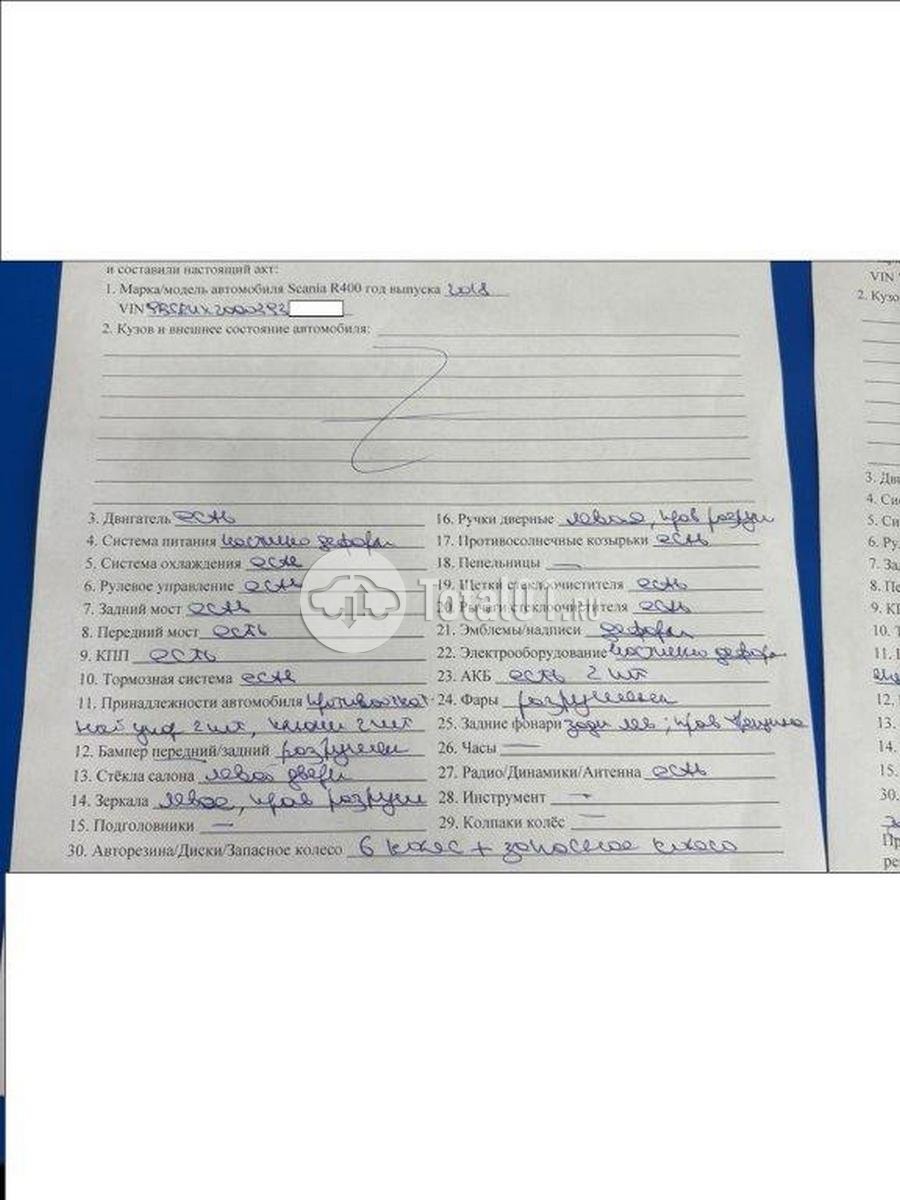 и составили настоящий акт:
1. Марка/модель автомобиля Scania R400 год выпуска 2018
VIN
2. Кузов и внешнее состояние автомобиля:
3. Двигатель есть
4. Система питания частично деформ
5. Система охлаждения есть
6. Рулевое управление есть
7. Задний мост есть
8. Передний мост есть
9. КПП есть
10. Тормозная система есть
11. Принадлежности автомобиля противооткат
ной 2 шт, 2 шт
12. Бампер передний/задний разрушен
13. Стёкла салона левой двери
14. Зеркала левое, прав разруш
15. Подголовники —
16. Ручки дверные левая, прав разруш
17. Противосолнечные козырьки есть
18. Пепельницы —
19. Щетки стеклоочистителя есть
20. Рычаги стеклоочистителя есть
21. Эмблемы/надписи деформ
22. Электрооборудование частично деформ
23. АКБ есть 2 шт
24. Фары разрушены
25. Задние фонари задн лев; прав трещина
26. Часы —
27. Радио/Динамики/Антенна есть
28. Инструмент —
29. Колпаки колёс —
30. Авторезина/Диски/Запасное колесо 6 колес + запасное колесо
Total01.ru
VIN
2. Кузо
3. Дви
4. Сис
5. Си
6. Ру
7. Зад
8. Пе
9. КП
10. Т
11.
12.
13.
14.
15.
30.
Пр
ре